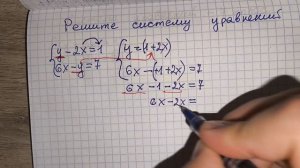 Решите систему уравнений
{y-2x=1 {y=(1+2x)
{6x-y=7 {6x-(1+2x)=7
6x-1-2x=7
6x-2x=